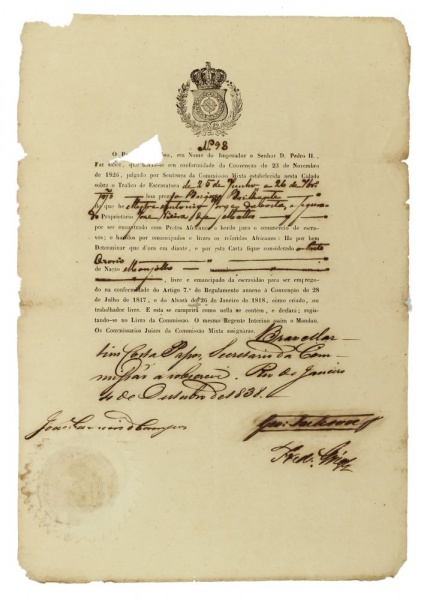 Nº 98
O R , em Nome do Imperador o Senhor D. Pedro II,
Faz saber, que em conformidade da Convenção de 23 de Novembro
de 1826, julgado por Sentença da Commissão Mixta estabelecida nesta Cidade
sobre o Trafico de Escravatura de 25 de Junho, 26 de
1838 boa preza o Brigue Brilhante
de que he Mestre Antonio da Costa, e
do Proprietario José
por ser encontrado com Pretos Africanos a bordo para o commercio de escra-
vos; e havidos por emancipados e livres os referidos Africanos: Ha por bem
Determinar que d'ora em diante, e por esta Carta fique considerado o Preto
de Nação Monjollo
, livre e emancipado da escravidão para ser empregado
na conformidade do Artigo 7.º do Regulamento annexo á Convenção de 28
de Julho de 1817, e do Alvará de 26 de Janeiro de 1818, como criado, ou
trabalhador livre. E esta se cumprirá como nella se contém, e deixará regis-
tando-se no Livro da Commissão. O mesmo Regente Interino assim o Mandou.
Os Commissarios Juizes da Commissão Mixta assignárão.
Braz Mar-
tins Costa Passos, Secretario da Com-
missão a sobscrevi. Rio de Janeiro
de Outubro de 1838.
João Carneiro de Campos
Geo: Jackson
Fred. Grigg